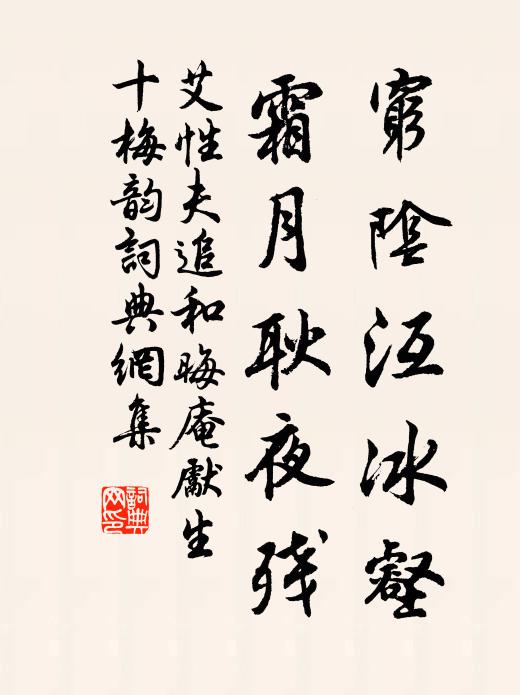 窮陰沍冰壑
霜月耿夜残
艾性夫追和晦庵獻生
十梅韵詞典網集
詞典
网印